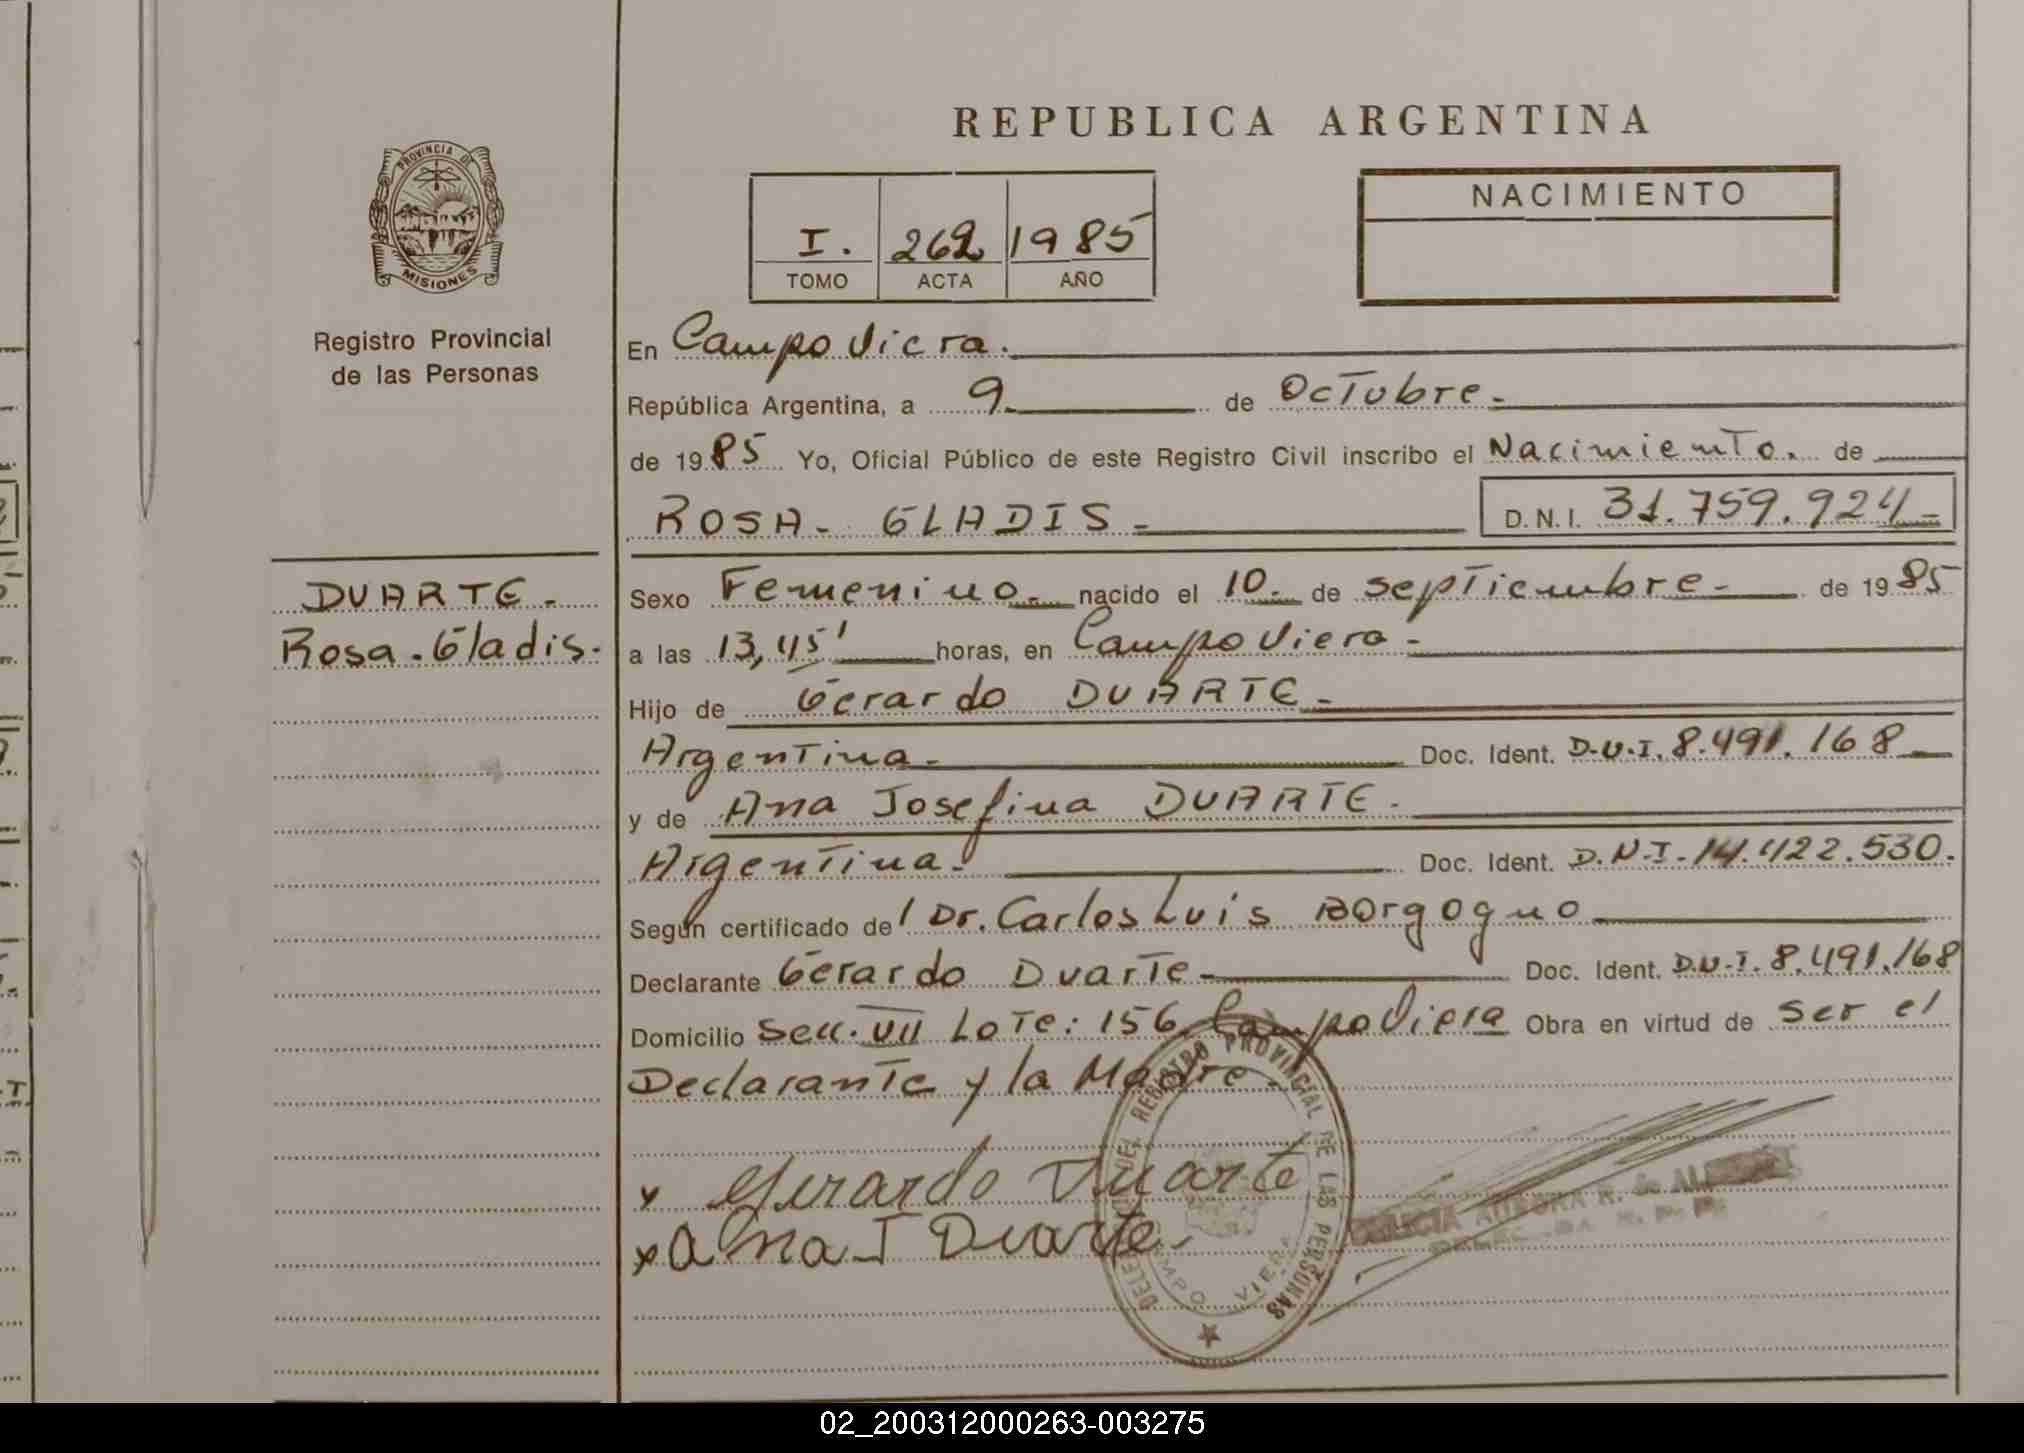 REPUBLICA ARGENTINA
PROVINCIA DE
MISIONES
Registro Provincial
de las Personas
I. 262 1985
TOMO ACTA AÑO
NACIMIENTO
En Campo Viera.
República Argentina, a 9 de Octubre.
de 1985 Yo, Oficial Público de este Registro Civil inscribo el Nacimiento. de
ROSA - GLADIS - D.N.I. 31.759.924
DUARTE.
Rosa - Gladis.
Sexo Femenino. nacido el 10. de septiembre - de 1985
a las 13,45' horas, en Campo Viera -
Hijo de Gerardo DUARTE -
Argentina - Doc. Ident. D.N.I. 8.491.168
y de Ana Josefina DUARTE.
Argentina - Doc. Ident. D.N.I. 14.422.530.
Según certificado del Dr. Carlos Luis Borgogno
Declarante Gerardo Duarte - Doc. Ident. D.N.I. 8.491.168
Domicilio Secc. VII Lote: 156 Campo Viera Obra en virtud de ser el
Declarante y la Madre.
x Gerardo Duarte
x Ana J Duarte.
DEL REGISTRO PROVINCIAL DE LAS PERSONAS
CAMPO VIERA
AURORA R. de
02_200312000263-003275